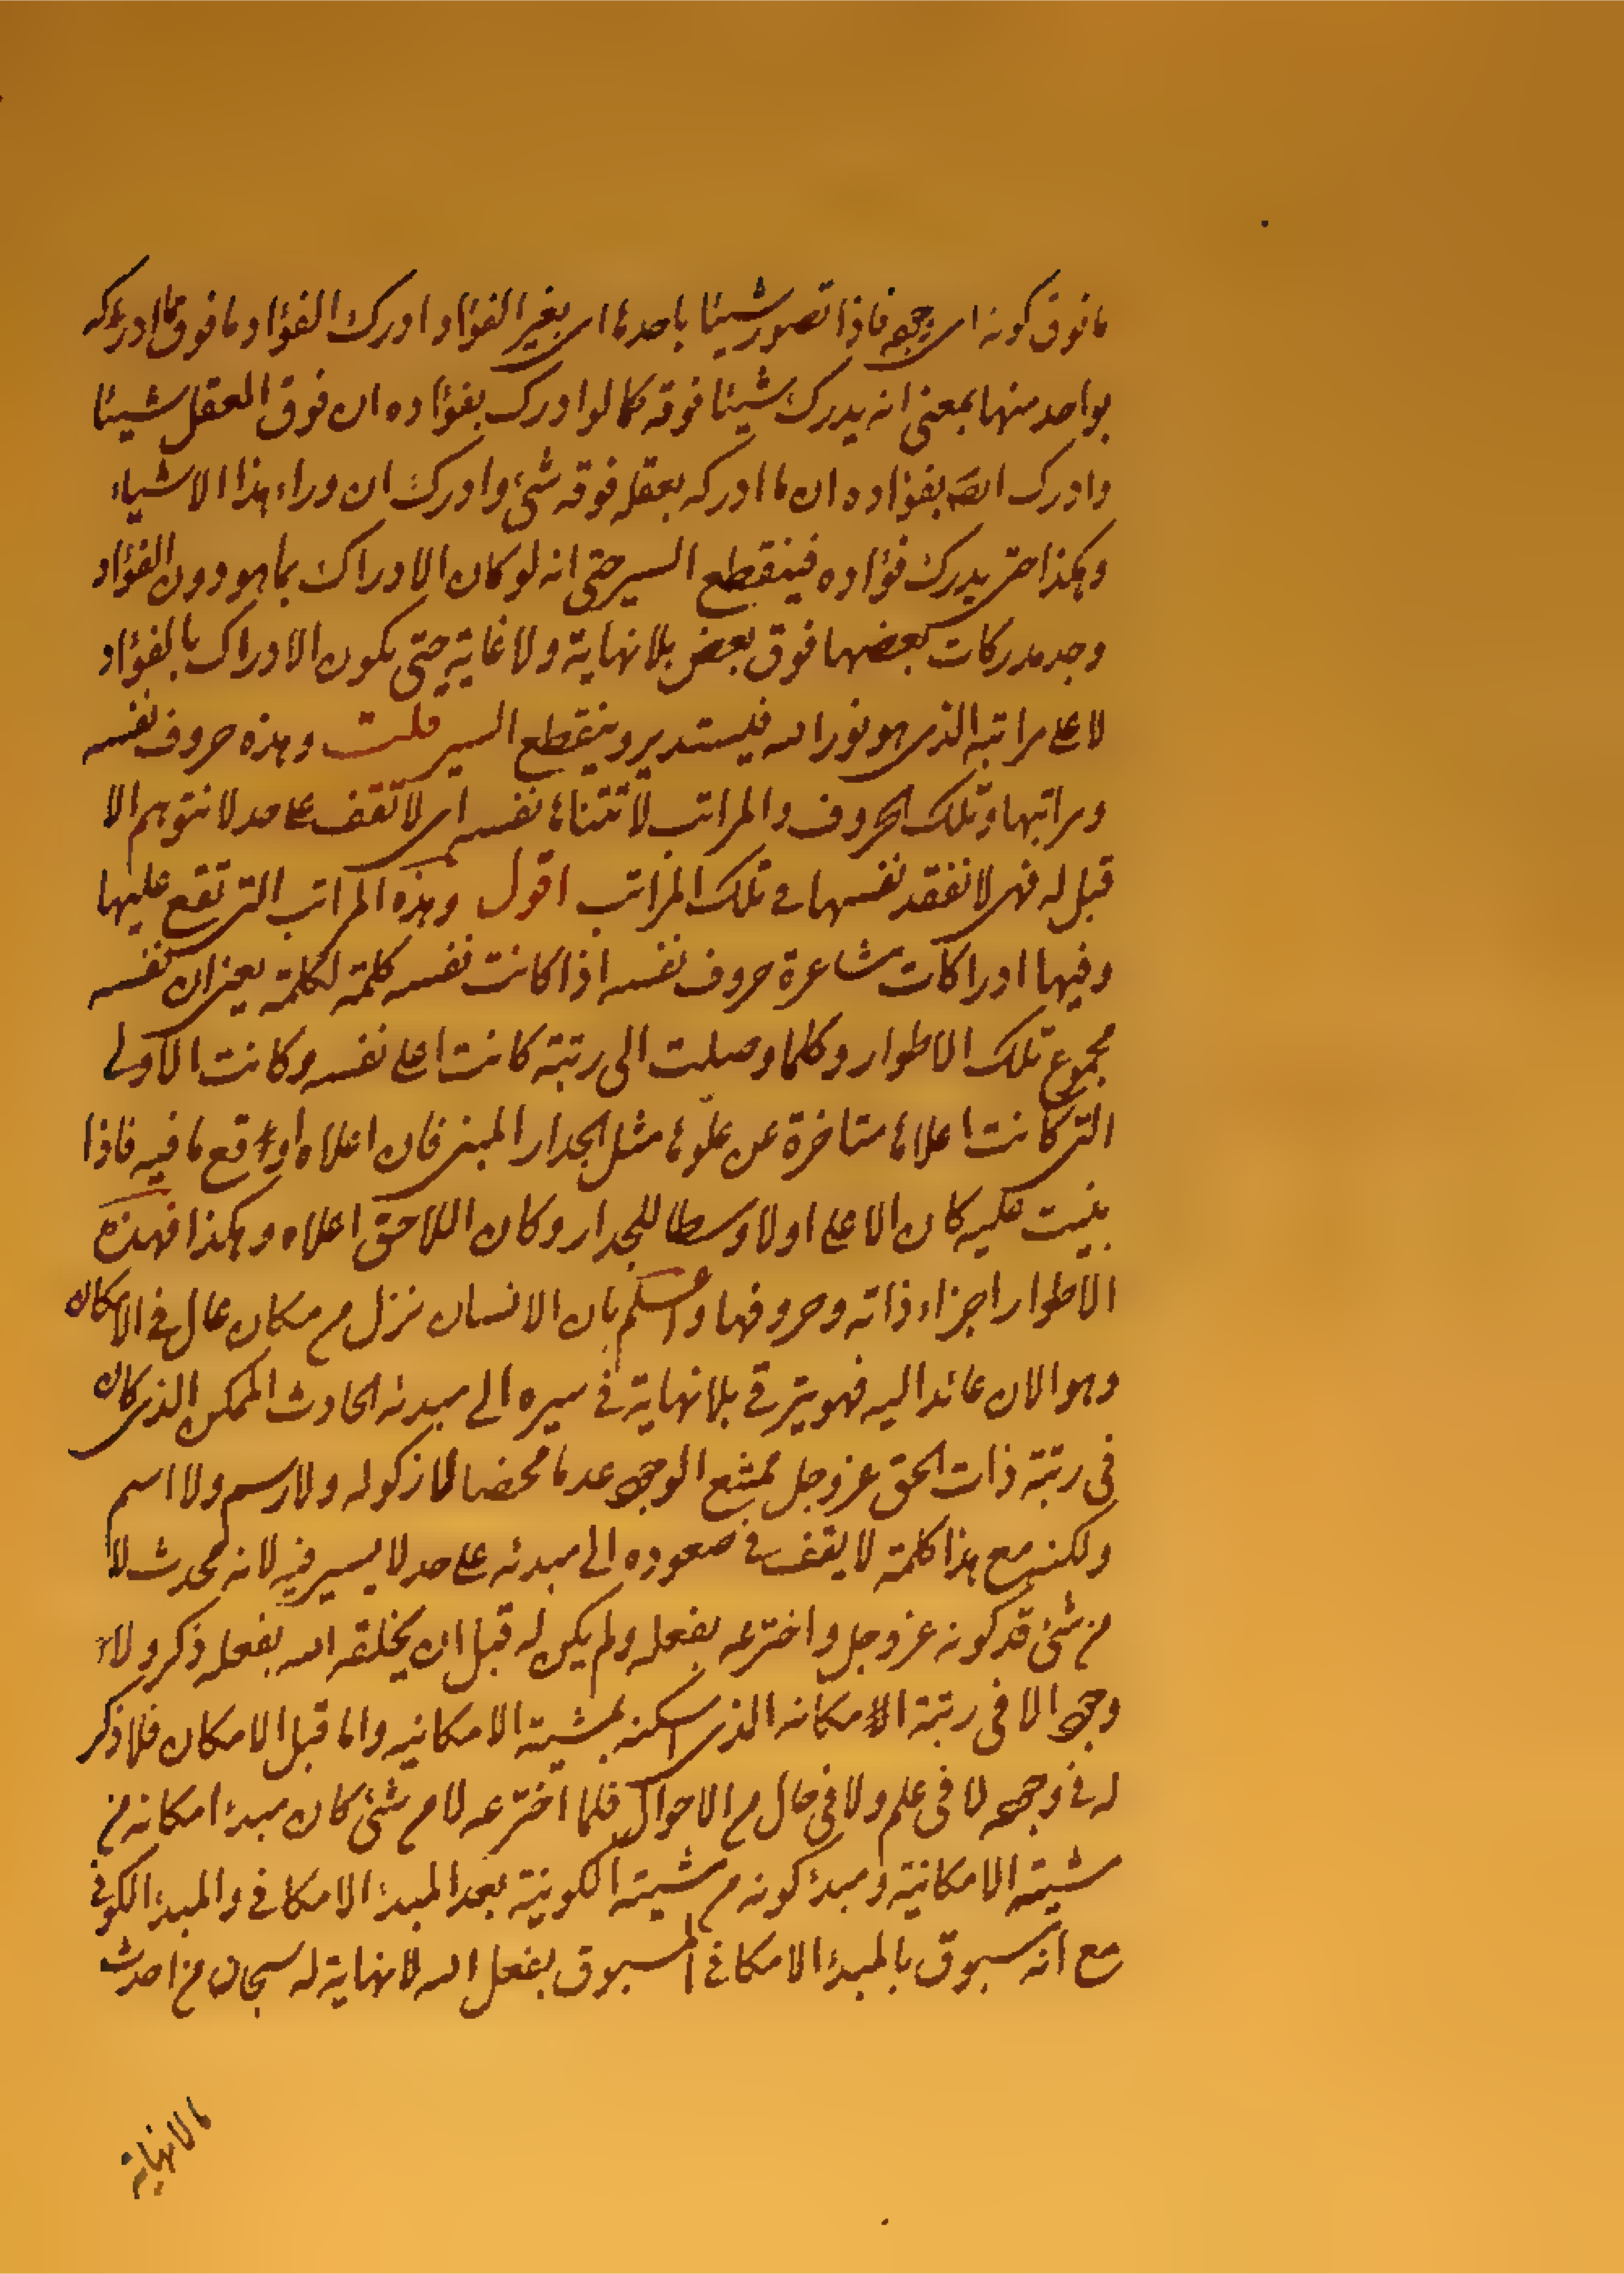 ما فوق كونه اى رجحه فاذا تصور شيئا باحدها اى بغير الفؤاد ادرك الفؤاد ما فوق ما ادركه
بواحد منها بمعنى انه يدرك شيئا فوقه كما لو ادرك بفؤاده ان فوق العقل شيئا
وادرك ايضا بفؤاده ان ما ادركه بعقله فوقه شئ وادرك ان وراء هذا الاشياء
وهكذا حتى يدرك فؤاده فينقطع السير حتى انه لو كان الادراك بما هو دون الفؤاد
وجد مدركات بعضها فوق بعض بلا نهاية ولا غاية حتى يكون الادراك بالفؤاد
لاعلى مراتبه الذى هو نور الله فيستدير وينقطع السير قلت وهذه حروف نفسه
ومراتبها وتلك الحروف والمراتب لا تتناها نفسه اى لا تقف على حد لا نتوهم الا
قبل له فهى لا تفقد نفسها فى تلك المراتب اقول وهذه المراتب التى تقع عليها
وفيها ادراكات مشاعرة حروف نفسه اذا كانت نفسه كلمة لكلمة يعنى ان نفسه
مجموع تلك الاطوار وكلما وصلت الى رتبة كانت اعلى نفسه وكانت الاولى
التى كانت اعلاها متاخرة عن علوها مثل الجدار المبنى فان اعلاه اوقع ما فيه فاذا
بنيت عليه كان الاعلى اولا وسطا للجدار وكان اللاحق اعلاه وهكذا فهذه
الاطوار اجزاء ذاته وحروفها واعلم بان الانسان نزل من مكان عال فى الامكان
وهو الان عائد اليه فهو يترقى بلا نهاية فى سيره الى مبدئه الحادث الممكن الذى كان
فى رتبة ذات الحق عز وجل ممتنع الوجود عدما محضا لا ذكر له ولا رسم ولا اسم
ولكنه مع هذا كلمة لا يقف فى صعوده الى مبدئه على حد لا يسير فيه لانه محدث لا
من شئ قد كونه عز وجل واخترعه بفعله ولم يكن له قبل ان يخلقه الله بفعله ذكر ولا
وجود الا فى رتبة الامكانه الذى اسكنه بمشيته الامكانيه واما قبل الامكان فلا ذكر
له فى وجود لا فى علم ولا فى حال من الاحوال فلما اخترعه لا من شئ كان مبدء امكانه من
مشيته الامكانية ومبدء كونه من مشيته الكونية بعد المبدء الامكانى والمبدء الكونى
مع انه مسبوق بالمبدء الامكانى المسبوق بفعل الله لا نهاية له سبحان من احدث
ما لا نهاية